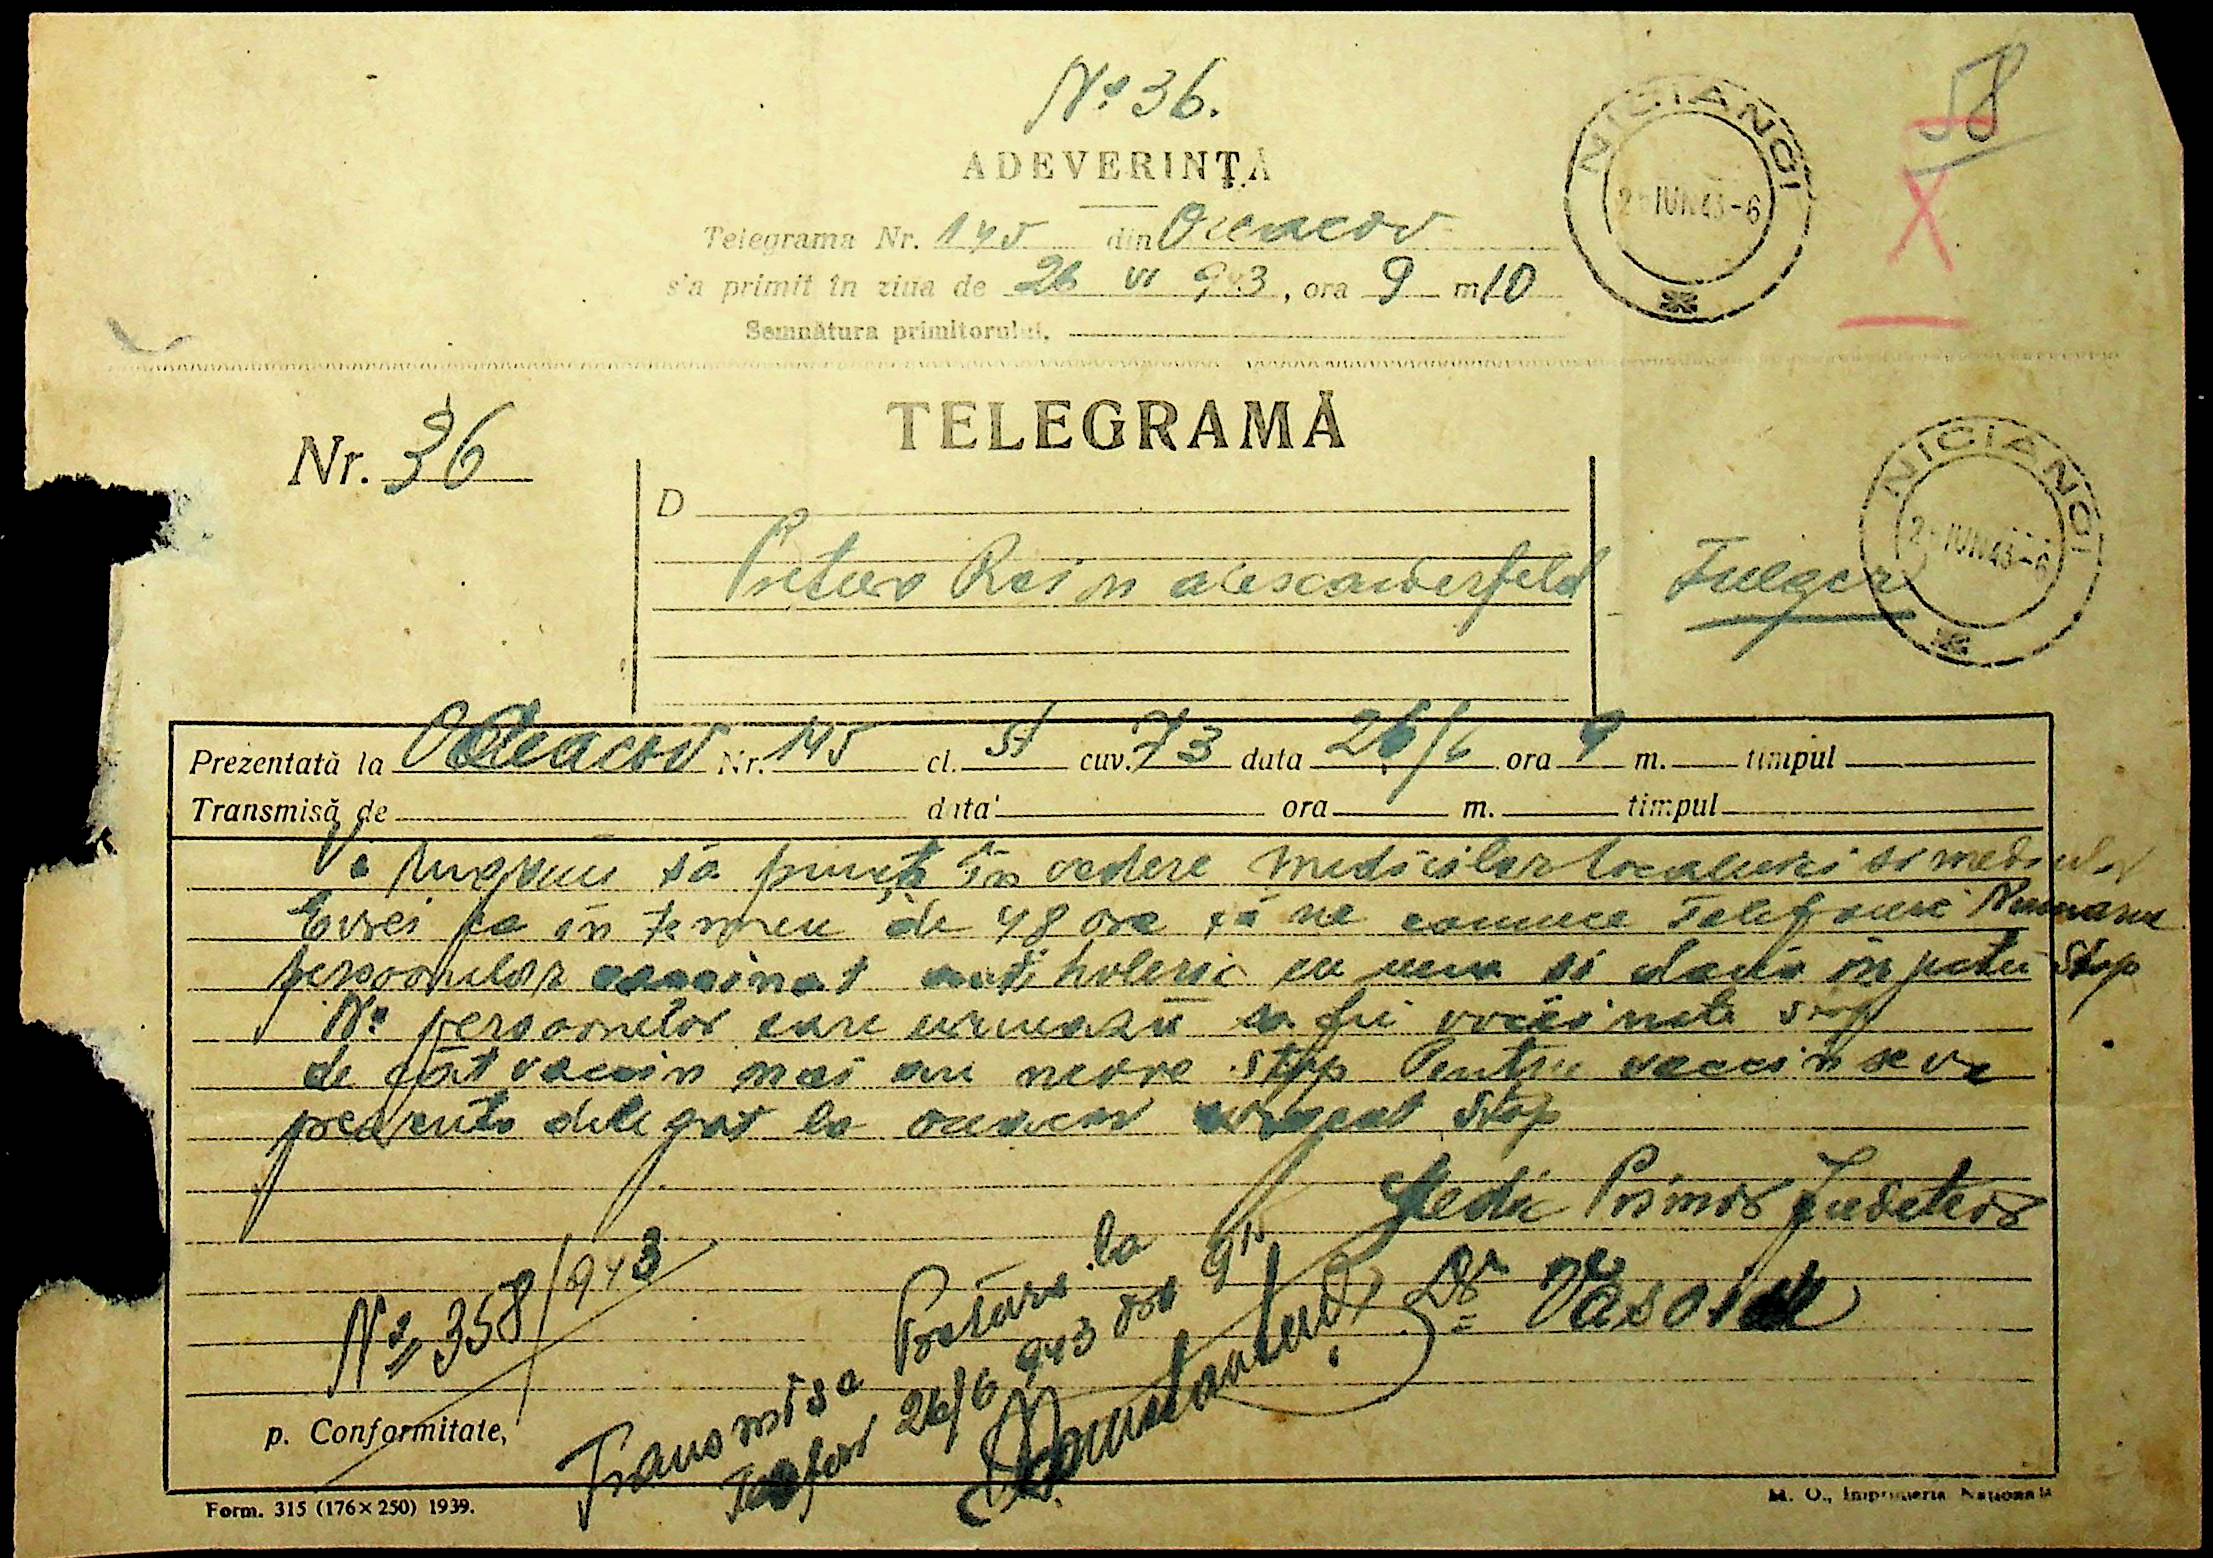 Nº 36.
58
ADEVERINŢĂ
Telegrama Nr. 145 din Oceacov
s'a primit în ziua de 26 VI 943, ora 9 m 10
Semnătura primitorului,
NICIANOI
IUN 43-6
X
TELEGRAMĂ
Nr. 36
D
Pretura Raion Alexanderfeld
Fulger
NICIANOI
IUN 43-6
Prezentată la Oceacov Nr. 145 cl. St cuv. 73 data 26/6 ora 9 m. timpul
Transmisă de data ora m. timpul
Vă rugăm să puneți în vedere medicilor localnici si medicilor
Evrei ca in termen de 48 ore să ne comunice Telefonic
persoanelor vaccinat antiholeric cu una si doua Stop
Nº persoanelor care urmează a fi vaccinate stop
de cât vaccin mai au nevoe stop Pentru vaccin se va
prezenta delegat la oceacov urgent Stop
Medic Primar Judetean
Dr
Nº 358/943
Transmisa Pretura la
Telefon 26/6 943 ora 9 15
p. Conformitate,
Form. 315 (176×250) 1939.
M. O., Imprimeria Naţională